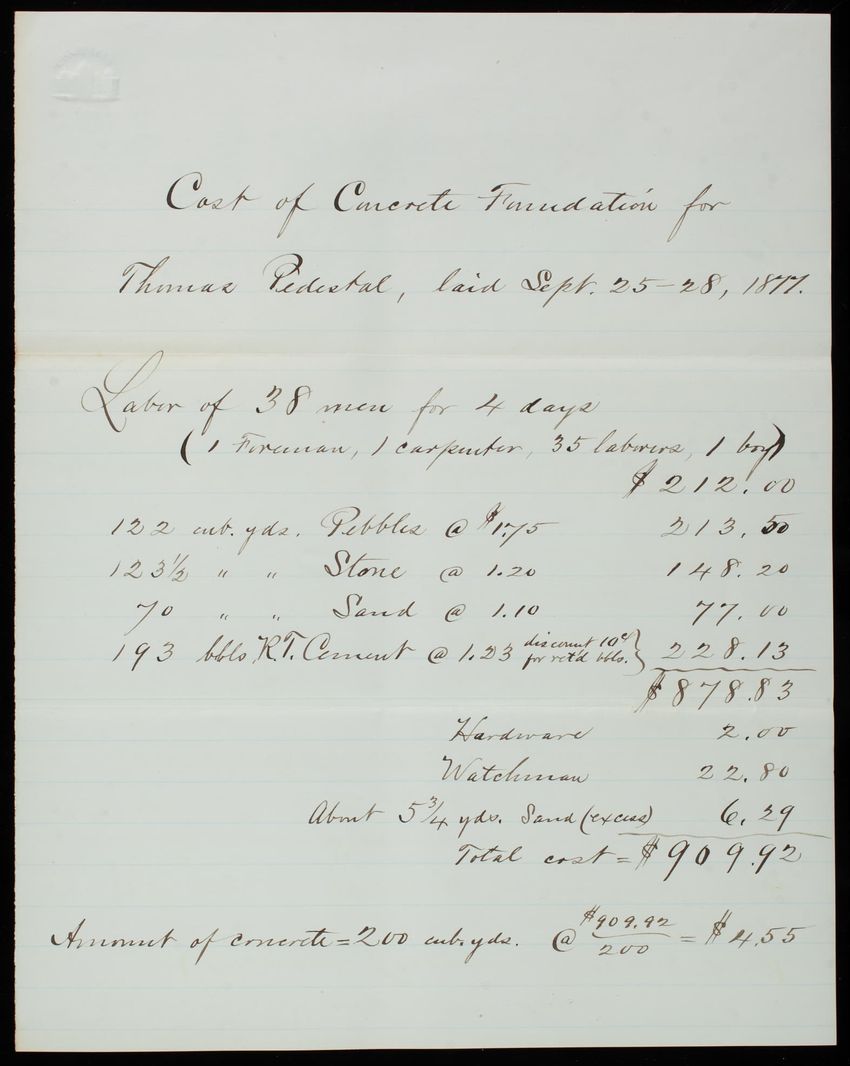 Cost of Concrete Foundation for
Thomas Pedestal, laid Sept. 25-28, 1877.
Labor of 38 men for 4 days
(1 Foreman, 1 carpenter, 35 laborers, 1 boy)
$212.00
122 cub. yds. Pebbles @ $1.75 213.50
123 1/2 " " Stone @ 1.20 148.20
70 " " Sand @ 1.10 77.00
193 bbls. R.T. Cement @ 1.23 discount 10¢ for ret'd bbls.} 228.13
$878.83
Hardware 2.00
Watchman 22.80
About 5 3/4 yds. Sand (excess) 6.29
Total cost = $909.92
Amount of concrete = 200 cub. yds. @ $909.92/200 = $4.55